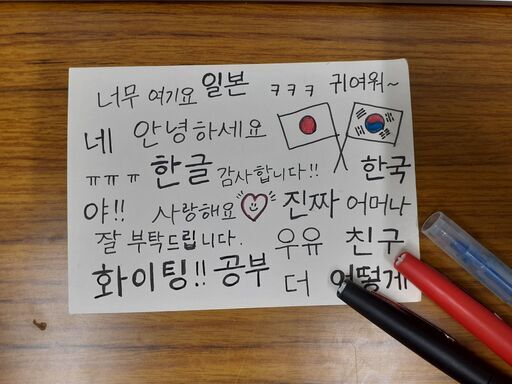 너무 여기요 일본 ㅋㅋㅋ 귀여워~
네 안녕하세요
ㅠㅠㅠ 한글 감사합니다!! 한국
야!! 사랑해요 진짜 어머나
잘 부탁드립니다. 우유 친구
화이팅!! 공부 더 어떻게